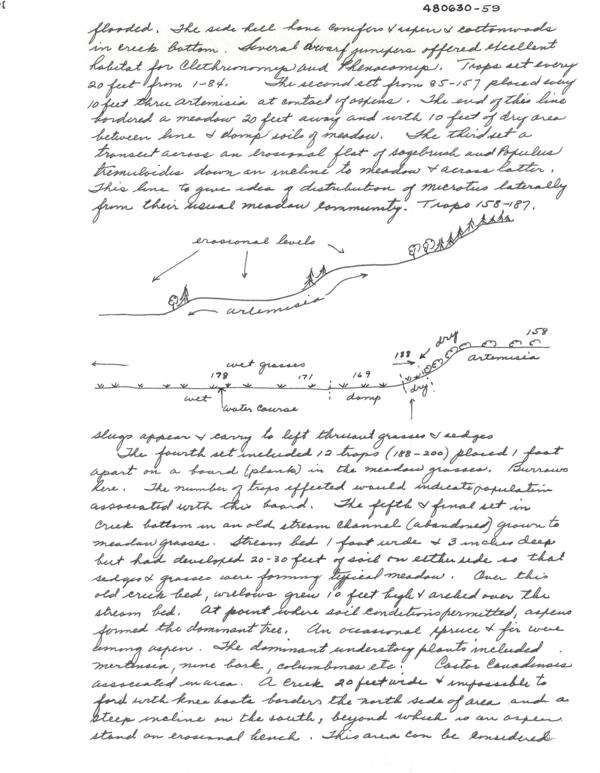 480630-59
flooded. The side hill have conifers & aspens & cottonwoods
in creek bottom. Several dwarf junipers offered excellent
habitat for Clethrionomys and Phenacomys. Traps set every
20 feet from 1-84. The second set from 85-157 placed every
10 feet thru Artemisia at contact of aspens. The end of this line
bordered a meadow 20 feet away and with 10 feet of dry area
between line & damp soils of meadow. The third set a
transect across an erosional flat of sagebrush and Populus
tremuloides down an incline to meadow & across latter.
This line to give idea of distribution of microtus laterally
from their usual meadow community. Traps 158-187.
erosional levels
artemisia
158
dry
188
wet grasses
artemisia
178
171
169
wet
damp
dry
water course
slugs appear & carry to left thruout grasses & sedges
The fourth set included 12 traps (188-200) placed 1 foot
apart on a board (plank) in the meadow grasses. Burrows
here. The number of traps effected would indicate population
associated with this board. The fifth & final set in
creek bottom in an old stream channel (abandoned) grown to
meadow grasses. Stream bed 1 foot wide & 3 inches deep
but had developed 20-30 feet of soil on either side so that
sedges & grasses were forming typical meadow. Over this
old creek bed, willows grew 10 feet high & arched over the
stream bed. At point where soil conditions permitted, aspens
formed the dominant tree. An occasional spruce & fir were
among aspen. The dominant understory plants included
mertensia, nine bark, columbines etc. Castor Canadensis
associated in area. A creek 20 feet wide & impossible to
ford with knee boots borders the north side of area and a
steep incline on the south, beyond which is an aspen
stand on erosional bench. This area can be considered